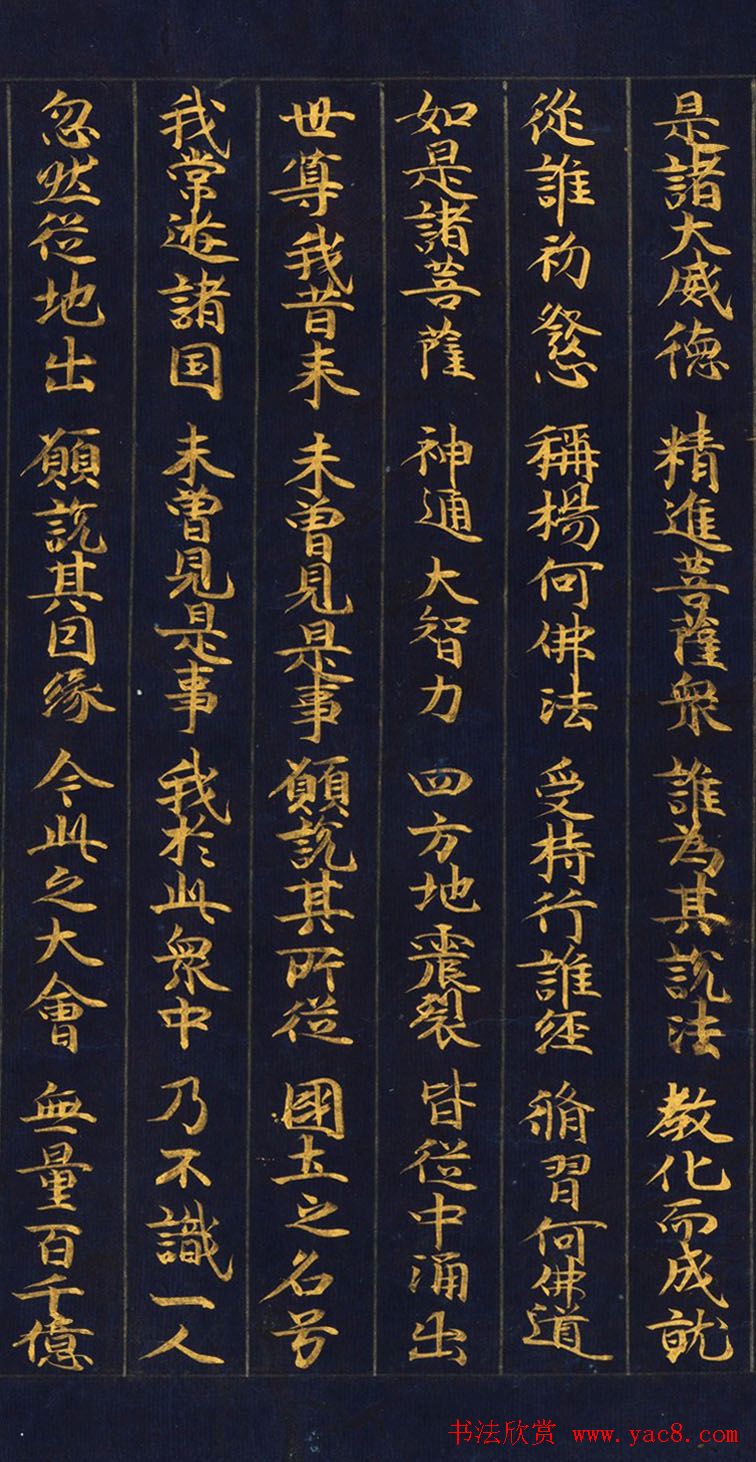 是諸大威德 精進菩薩衆 誰為其説法 教化而成就
從誰初發心 稱楊何佛法 受持行誰經 脩習何佛道
如是諸菩薩 神通大智力 四方地震裂 皆從中涌出
世尊我昔来 未曽見是事 願説其所從 國土之名号
我常遊諸国 未曽見是事 我於此衆中 乃不識一人
忽然從地出 願説其因縁 今此之大會 無量百千億
书法欣赏 www.yac8.com